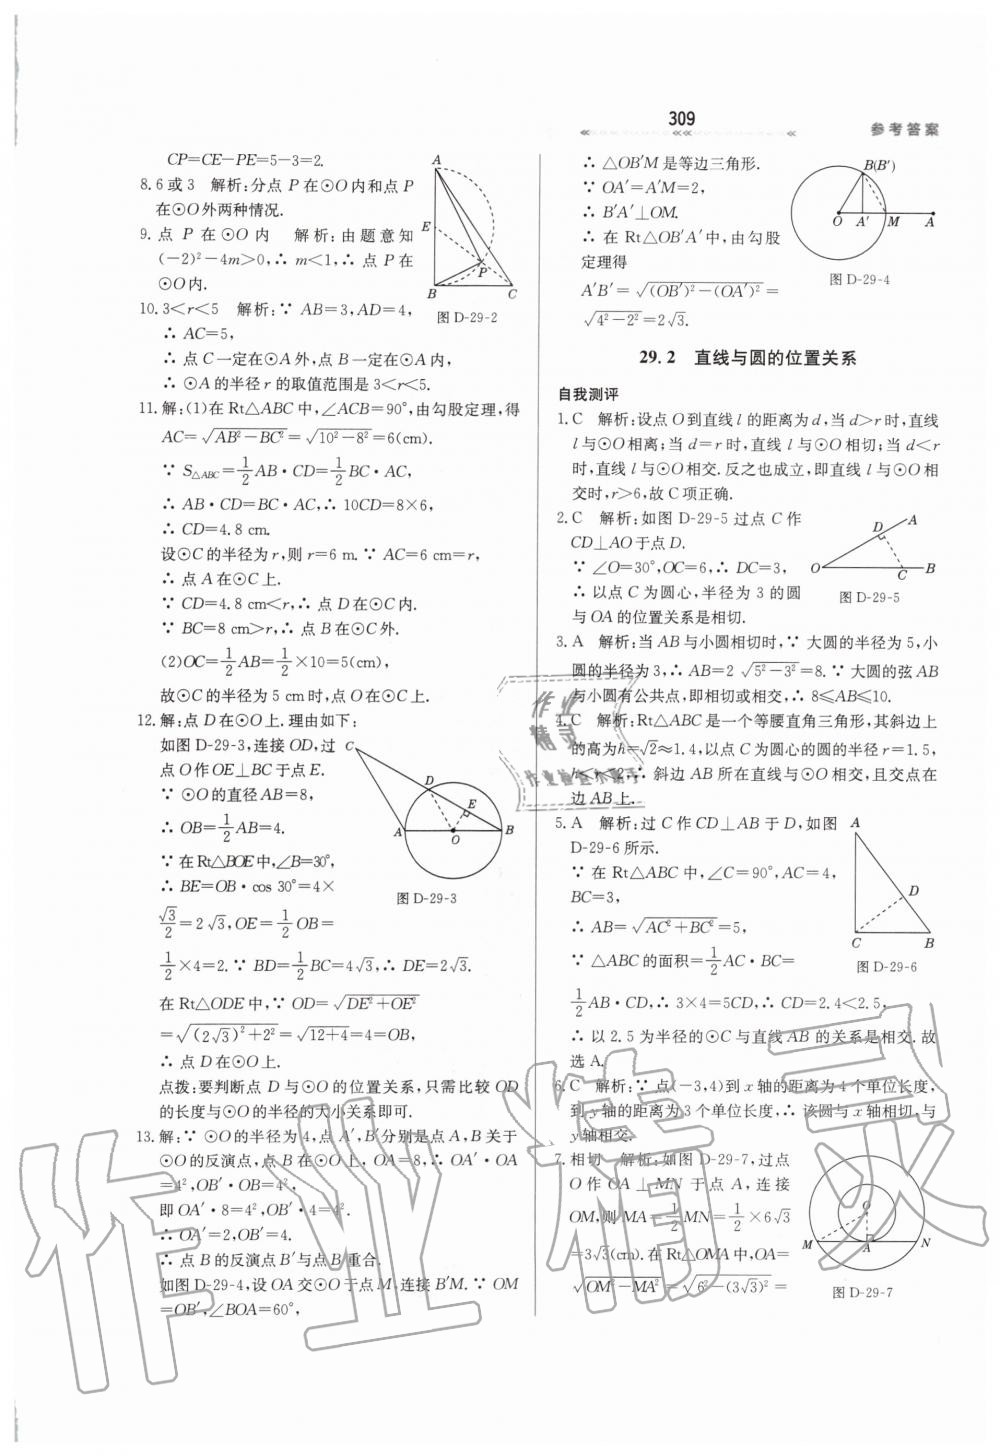 309
参考答案
CP=CE−PE=5−3=2.
8.6或3　解析:分点P在⊙O内和点P
在⊙O外两种情况.
9.点P在⊙O内　解析:由题意知
(−2)²−4m>0,∴m<1,∴点P在
⊙O内.
A
E
P
B
C
图D-29-2
10.3<r<5　解析:∵AB=3,AD=4,
∴AC=5,
∴点C一定在⊙A外,点B一定在⊙A内,
∴⊙A的半径r的取值范围是3<r<5.
11.解:(1)在Rt△ABC中,∠ACB=90°,由勾股定理,得
AC=√(AB²−BC²)=√(10²−8²)=6(cm).
∵S△ABC=1/2AB·CD=1/2BC·AC,
∴AB·CD=BC·AC,∴10CD=8×6,
∴CD=4.8 cm.
设⊙C的半径为r,则r=6 m.∵AC=6 cm=r,
∴点A在⊙C上.
∵CD=4.8 cm<r,∴点D在⊙C内.
∵BC=8 cm>r,∴点B在⊙C外.
(2)OC=1/2AB=1/2×10=5(cm),
故⊙C的半径为5 cm时,点O在⊙C上.
12.解:点D在⊙O上.理由如下:
如图D-29-3,连接OD,过
点O作OE⊥BC于点E.
∵⊙O的直径AB=8,
∴OB=1/2AB=4.
∵在Rt△BOE中,∠B=30°,
∴BE=OB·cos 30°=4×
√3/2=2√3,OE=1/2OB=
1/2×4=2.∵BD=1/2BC=4√3,∴DE=2√3.
C
D
E
A
O
B
图D-29-3
在Rt△ODE中,∵OD=√(DE²+OE²)
=√((2√3)²+2²)=√(12+4)=4=OB,
∴点D在⊙O上.
点拨:要判断点D与⊙O的位置关系,只需比较OD
的长度与⊙O的半径的大小关系即可.
13.解:∵⊙O的半径为4,点A′,B′分别是点A,B关于
⊙O的反演点,点B在⊙O上,OA=8,∴OA′·OA
=4²,OB′·OB=4².
即OA′·8=4²,OB′·4=4².
∴OA′=2,OB′=4.
∴点B的反演点B′与点B重合.
如图D-29-4,设OA交⊙O于点M,连接B′M.∵OM
=OB′,∠BOA=60°,
∴△OB′M是等边三角形.
∵OA′=A′M=2,
∴B′A′⊥OM.
∴在Rt△OB′A′中,由勾股
定理得
A′B′=√((OB′)²−(OA′)²)=
√(4²−2²)=2√3.
B(B′)
O
A′
M
A
图D-29-4
29.2　直线与圆的位置关系
自我测评
1.C　解析:设点O到直线l的距离为d,当d>r时,直线
l与⊙O相离;当d=r时,直线l与⊙O相切;当d<r
时,直线l与⊙O相交.反之也成立,即直线l与⊙O相
交时,r>6,故C项正确.
2.C　解析:如图D-29-5过点C作
CD⊥AO于点D.
∵∠O=30°,OC=6,∴DC=3,
∴以点C为圆心,半径为3的圆
与OA的位置关系是相切.
A
D
O
C
B
图D-29-5
3.A　解析:当AB与小圆相切时,∵大圆的半径为5,小
圆的半径为3,∴AB=2√(5²−3²)=8.∵大圆的弦AB
与小圆有公共点,即相切或相交,∴8≤AB≤10.
4.C　解析:Rt△ABC是一个等腰直角三角形,其斜边上
的高为h=√2≈1.4,以点C为圆心的圆的半径r=1.5,
h<r<2,∴斜边AB所在直线与⊙O相交,且交点在
边AB上.
5.A　解析:过C作CD⊥AB于D,如图
D-29-6所示.
∵在Rt△ABC中,∠C=90°,AC=4,
BC=3,
∴AB=√(AC²+BC²)=5,
∵△ABC的面积=1/2AC·BC=
1/2AB·CD,∴3×4=5CD,∴CD=2.4<2.5,
∴以2.5为半径的⊙C与直线AB的关系是相交.故
选A.
A
D
C
B
图D-29-6
6.C　解析:∵点(−3,4)到x轴的距离为4个单位长度,
到y轴的距离为3个单位长度,∴该圆与x轴相切,与
y轴相交.
7.相切　解析:如图D-29-7,过点
O作OA⊥MN于点A,连接
OM,则MA=1/2MN=1/2×6√3
=3√3(cm).在Rt△OMA中,OA=
√(OM²−MA²)=√(6²−(3√3)²)=
O
M
A
N
图D-29-7
作业
精灵
作业精灵